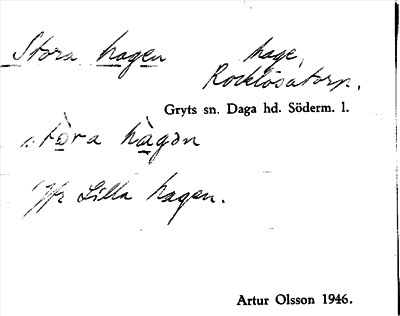 Stora hagen hage,
Rocklösatorp.
Gryts sn. Daga hd. Söderm. l.
stòra hàgən
Jfr Lilla hagen.
Artur Olsson 1946.